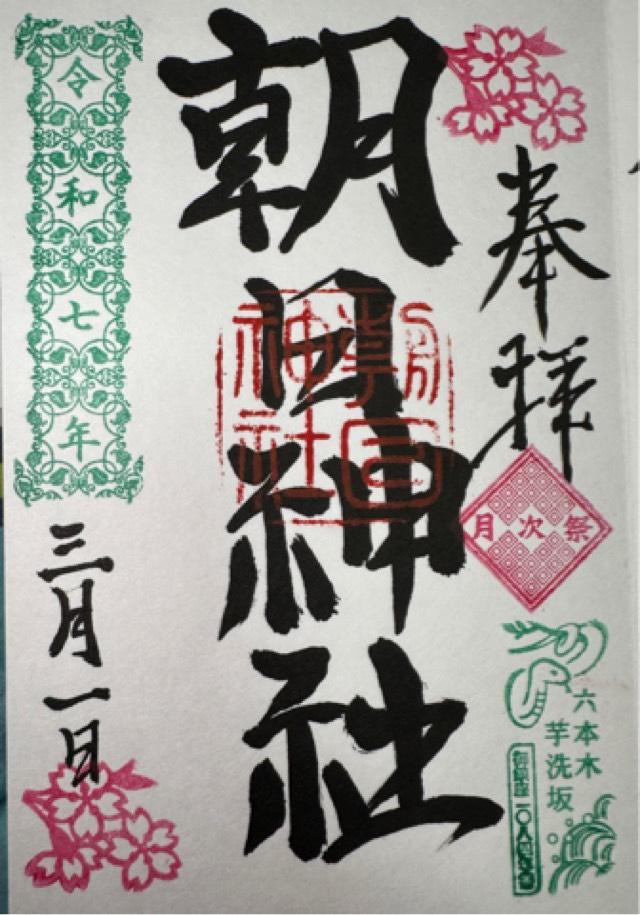 奉拝
月次祭
六本木
芋洗坂
朝日神社
朝日神社
令和七年
三月一日